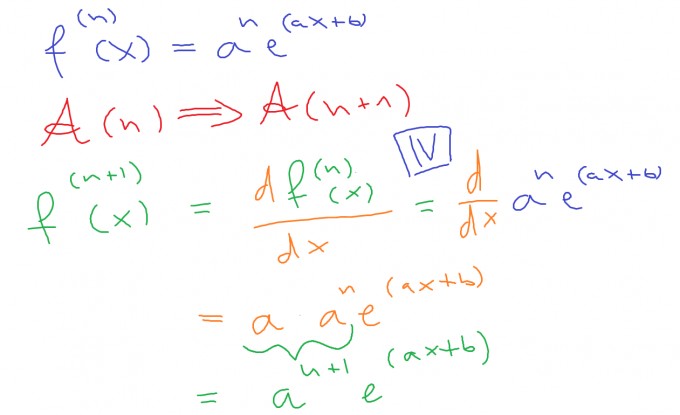 f^(n)(x) = a^n e^(ax+b)
A(n) ⟹ A(n+1)
f^(n+1)(x) = d f^(n)(x) / dx =^[IV] d/dx a^n e^(ax+b)
= a a^n e^(ax+b)
= a^(n+1) e^(ax+b)